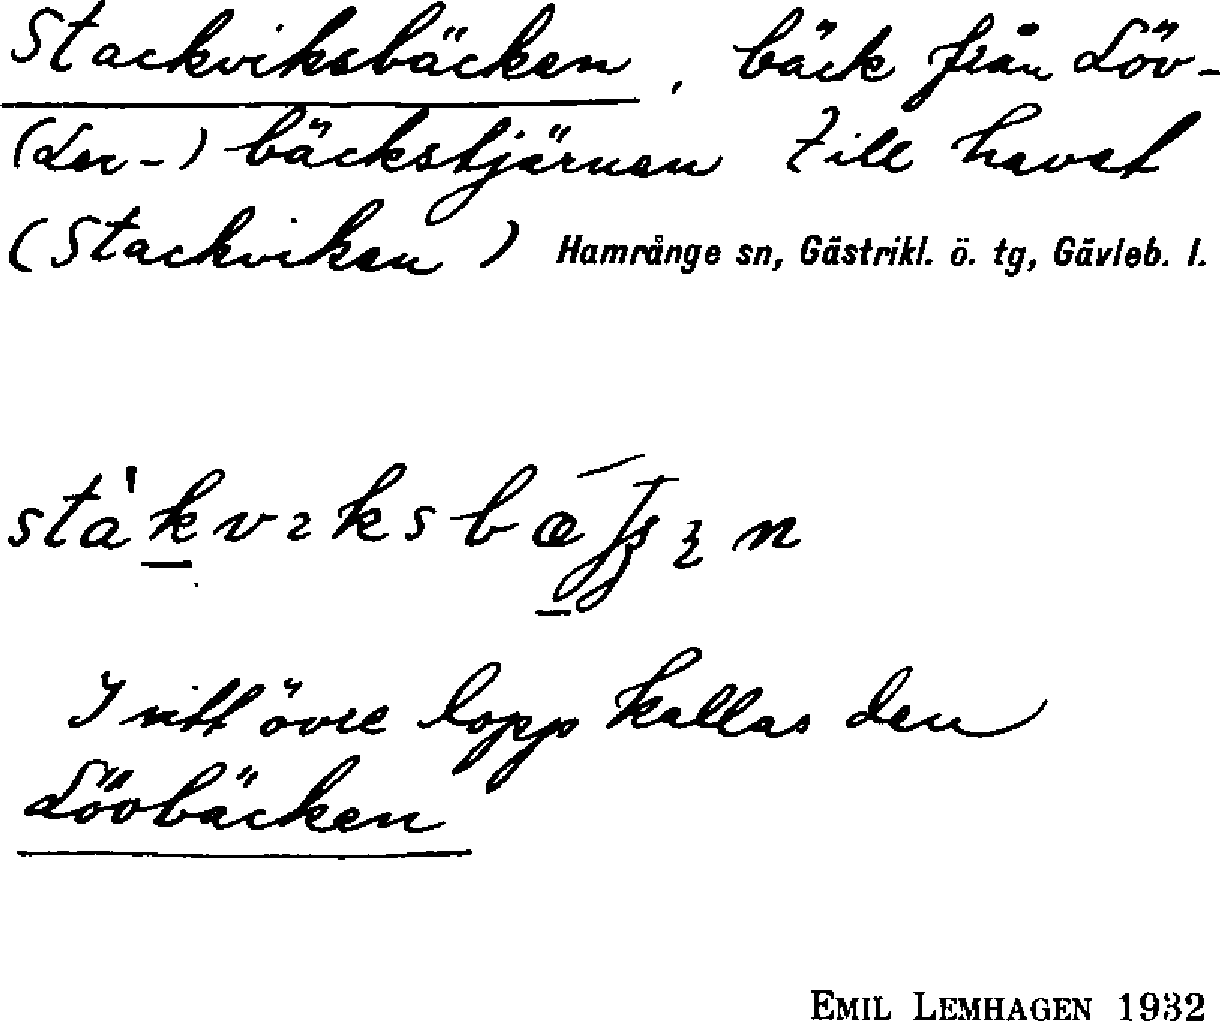 Stackviksbäcken, bäck från Löv-
(Ler-) bäckstjärnen till havet
(Stackviken) Hamrånge sn, Gästrikl. ö. tg, Gävleb. l.
I sitt övre lopp kallas den
Lövbäcken
EMIL LEMHAGEN 1932